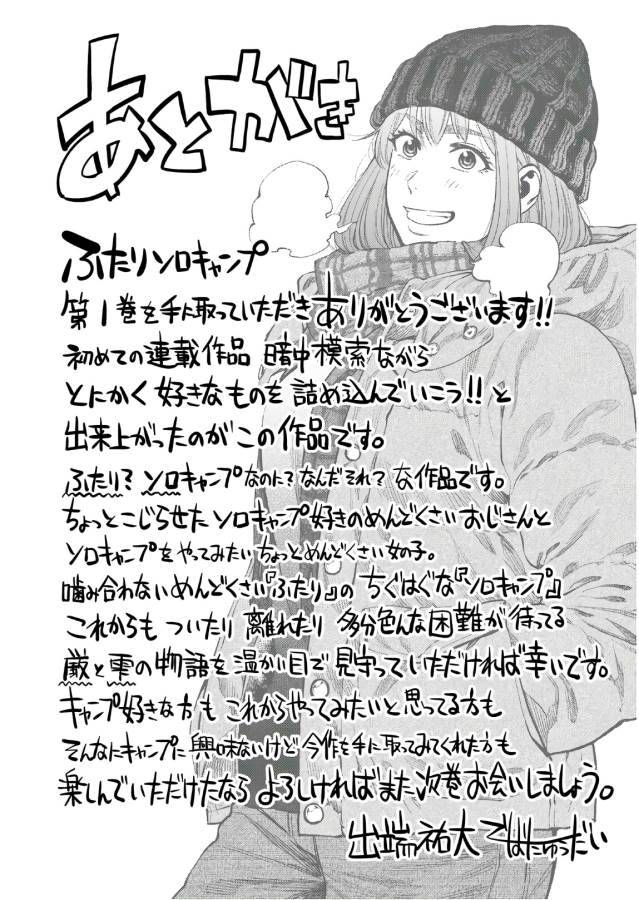 あとがき
ふたりソロキャンプ
第1巻を手に取っていただきありがとうございます!!
初めての連載作品 暗中模索ながら
とにかく好きなものを詰め込んでいこう!!と
出来上がったのがこの作品です。
ふたり?ソロキャンプなのに?なんだそれ?な作品です。
ちょっとこじらせたソロキャンプ好きのめんどくさいおじさんと
ソロキャンプをやってみたいちょっとめんどくさい女の子。
噛み合わないめんどくさい『ふたり』のちぐはぐな『ソロキャンプ』
これからもついたり離れたり多分色んな困難が待ってる
厳と雫の物語を温かい目で見守っていただければ幸いです。
キャンプ好きな方もこれからやってみたいと思ってる方も
そんなにキャンプに興味ないけど今作を手に取ってみてくれた方も
楽しんでいただけたならよろしければまた次巻お会いしましょう。
出端祐大 ではたゆうだい